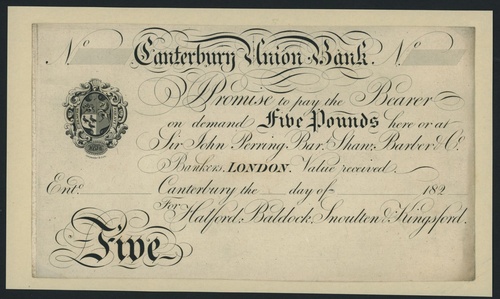 No Canterbury Union Bank. No
I Promise to pay the Bearer
on demand Five Pounds here or at
Sir John Perring Bar.t Shaw, Barber & Co.
Bankers, LONDON. Value received.
Ent.d Canterbury the day of 182
For Halford, Baddock, Snoulten & Kingsford.
Five